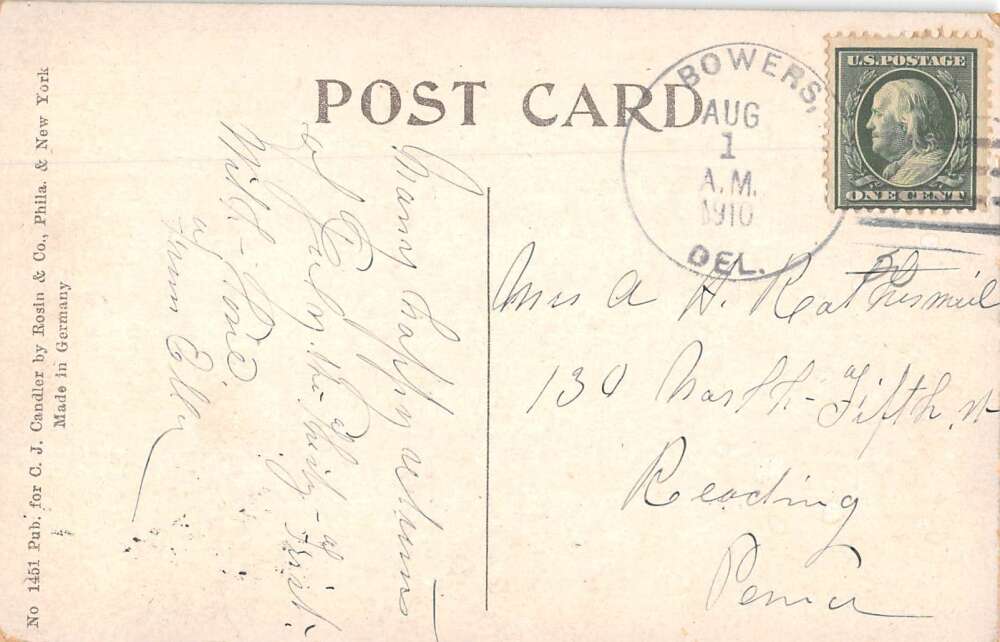 POST CARD
BOWERS,
AUG
1
A.M.
1910
DEL.
U.S. POSTAGE
ONE CENT
No 1451 Pub. for C. J. Candler by Rosin & Co., Phila. & New York
Made in Germany
Many happy returns
of July the Thirty-First.
With-love
from Ella
A H Rothermel
130 North-Fifth St
Reading
Penna